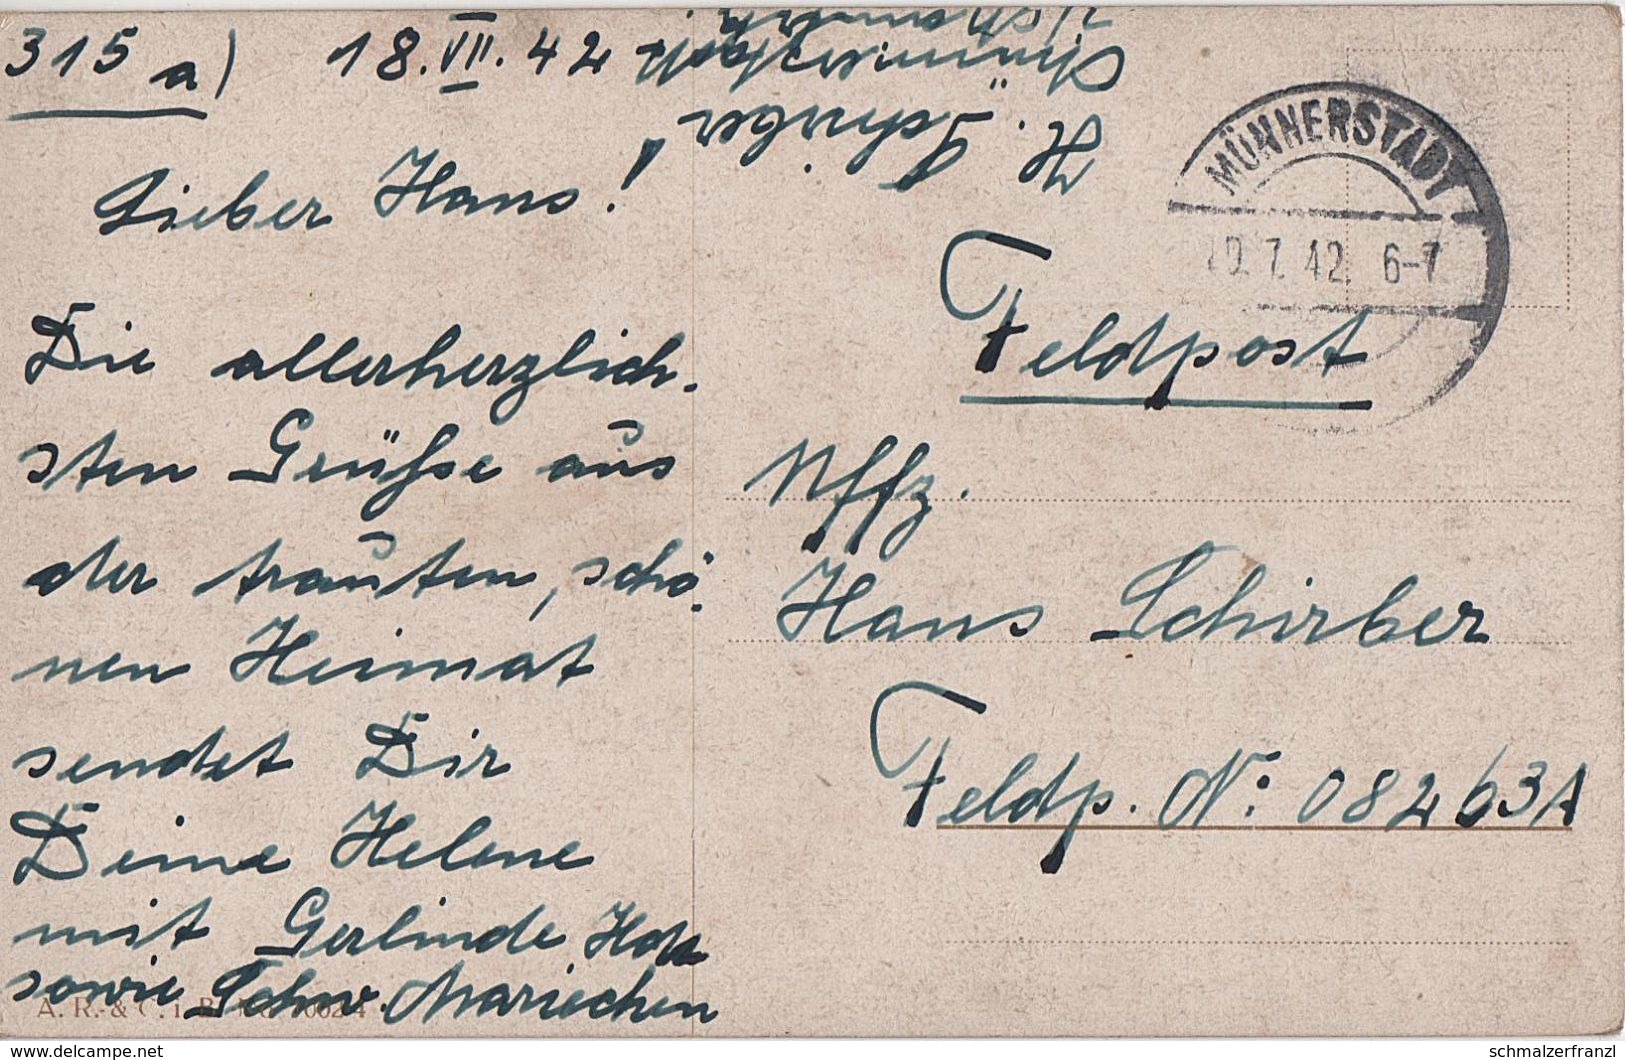 315 a) 18. VII. 42
Lieber Hans!
Die allerherzlich-
sten Grüße aus
der trauten, schö-
nen Heimat
sendet Dir
Deine Helene
mit Gerlinde
sowie Schw. Mariechen
A. R. & C. i. B.
H.
MÜNNERSTADT
7.42. 6-7
Feldpost
Uffz.
Hans Schirber
Feldp. Nr: 08263A
delcampe.net
schmalzerfranzl